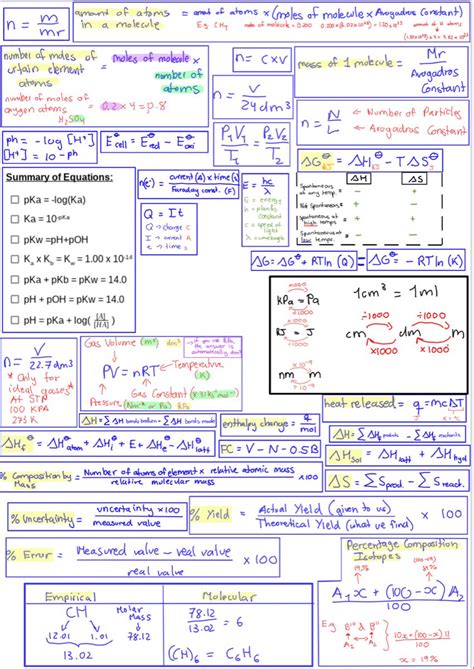 n = m/mr
amount of atoms in a molecule = amont of atoms × (moles of molecule × Avogadros Constant)
E.g CH4
number of moles of certain element atoms = moles of molecule × number of atoms
number of moles of oxygen atoms = 0.2 × 4 = 0.8
H2SO4
n = c × v
n = v/24 dm3
mass of 1 molecule = Mr/Avogadros Constant
n = N/L
← Number of Particles
← Avogadros Constant
ph = -log [H+]
[H+] = 10-ph
E⊖cell = E⊖red - E⊖oxi
P1V1/T1 = P2V2/T2
ΔG⊖ = ΔH⊖ - TΔS⊖
KJ KJ
Summary of Equations:
pKa = -log(Ka)
Ka = 10-pKa
pKw =pH+pOH
Ka x Kb = Kw = 1.00 x 10-14
pKa + pKb = pKw = 14.0
pH + pOH = pKw = 14.0
pH = pKa + log( [A]/[HA] )
n(e) = current (A) × time (s)/Faraday const. (F)
Q = It
Q → charge C
I → current A
t → time s
E = hc/λ
E = energy
h = planks constant
c = speed of light
λ = wavelength
ΔH ΔS
Spontaneous at any temp. - +
Not Spontaneous + -
Spontaneous at high temps + +
Spontaneous at low temps - -
ΔG = ΔG⊖ + RTln (Q) = ΔG⊖ = - RTln (K)
×1000
kPa = Pa
÷1000
×1000
KJ = J
÷1000
×10-9
nm m
×10-9
1cm3 = 1ml
÷1000 ÷1000
cm dm m
×1000 ×1000
n = V/22.7 dm3
* Only for ideal gases *
At STP
100 KPA
273 K
Gas Volume (m3) dm3
→ if you use KPa, the answer is automatically dm3
PV = nRT
← Temperature (K)
Gas Constant
Pressure (Nm-2 or Pa) KPa
ΔH = Σ ΔH bonds broken - Σ ΔH bonds made
enthalpy change = q/mol
heat released = q = mcΔT
ΔH⊖f = ΔH⊖atom + ΔH⊖f + E + ΔH⊖e - ΔH⊖latt
FC = V - N - 0.5B
ΔH = Σ ΔHf products - Σ ΔHf reactants
ΔHsol = ΔHlatt + ΔHhyd
% Composition by Mass = Number of atoms of element × relative atomic mass/relative molecular mass
ΔS = Σ Sprod. - Σ Sreact.
% Uncertainty = uncertainty × 100/measured value
% Yield = Actual Yield (given to us)/Theoretical Yield (what we find) × 100
% Error = Measured value - real value/real value × 100
Percentage Composition Isotopes
A1x + (100-x)A2/100
E.g B10 & B11
A1 A2
10x + (100-x)11/100
x = 19%
Empirical Molecular
CH
12.01 1.01
13.02
Molar Mass → 78.12
78.12/13.02 = 6
(CH)6 = C6H6